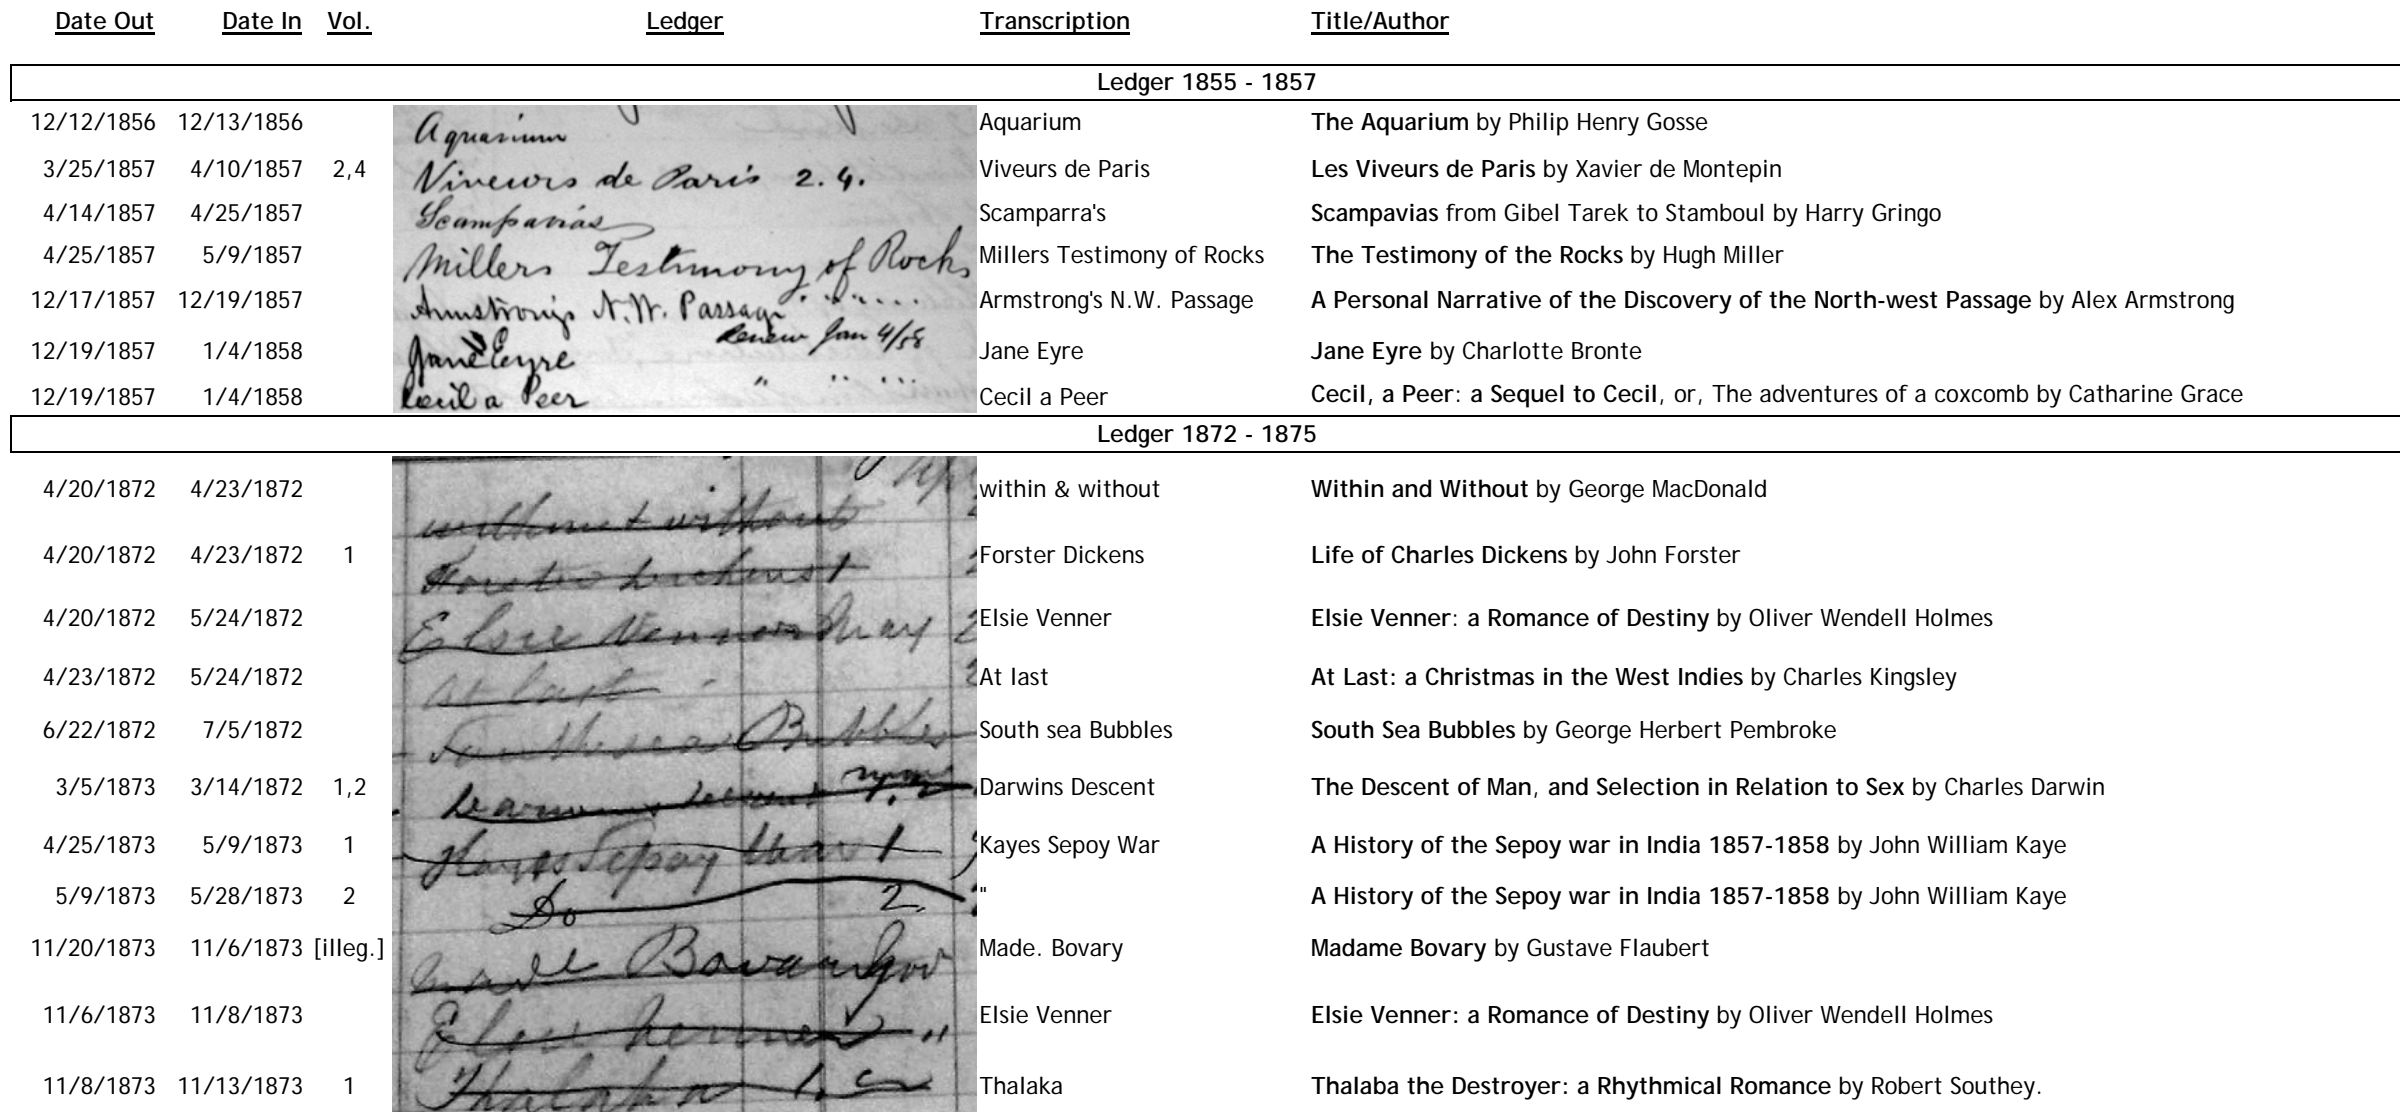 Date Out Date In Vol. Ledger Transcription Title/Author
Ledger 1855 - 1857
12/12/1856 12/13/1856 Aquarium Aquarium The Aquarium by Philip Henry Gosse
3/25/1857 4/10/1857 2,4 Viveurs de Paris 2. 4. Viveurs de Paris Les Viveurs de Paris by Xavier de Montepin
4/14/1857 4/25/1857 Scampavias Scamparra's Scampavias from Gibel Tarek to Stamboul by Harry Gringo
4/25/1857 5/9/1857 Millers Testimony of Rocks Millers Testimony of Rocks The Testimony of the Rocks by Hugh Miller
12/17/1857 12/19/1857 Armstrong's N.W. Passage Armstrong's N.W. Passage A Personal Narrative of the Discovery of the North-west Passage by Alex Armstrong
Renew Jan 4/58
12/19/1857 1/4/1858 Jane Eyre Jane Eyre Jane Eyre by Charlotte Bronte
12/19/1857 1/4/1858 Cecil a Peer " " " Cecil a Peer Cecil, a Peer: a Sequel to Cecil, or, The adventures of a coxcomb by Catharine Grace
Ledger 1872 - 1875
4/20/1872 4/23/1872 within & without within & without Within and Without by George MacDonald
4/20/1872 4/23/1872 1 Forster Dickens 1 Forster Dickens Life of Charles Dickens by John Forster
4/20/1872 5/24/1872 Elsie Venner May Elsie Venner Elsie Venner: a Romance of Destiny by Oliver Wendell Holmes
4/23/1872 5/24/1872 At last At last At Last: a Christmas in the West Indies by Charles Kingsley
6/22/1872 7/5/1872 South sea Bubbles South sea Bubbles South Sea Bubbles by George Herbert Pembroke
3/5/1873 3/14/1872 1,2 Darwins Descent 1. 2 Darwins Descent The Descent of Man, and Selection in Relation to Sex by Charles Darwin
4/25/1873 5/9/1873 1 Kayes Sepoy War 1 Kayes Sepoy War A History of the Sepoy war in India 1857-1858 by John William Kaye
5/9/1873 5/28/1873 2 Do 2. " A History of the Sepoy war in India 1857-1858 by John William Kaye
11/20/1873 11/6/1873 [illeg.] Bovary Nov Made. Bovary Madame Bovary by Gustave Flaubert
11/6/1873 11/8/1873 Elsie Venner " Elsie Venner Elsie Venner: a Romance of Destiny by Oliver Wendell Holmes
11/8/1873 11/13/1873 1 Thalaba 1. Thalaka Thalaba the Destroyer: a Rhythmical Romance by Robert Southey.